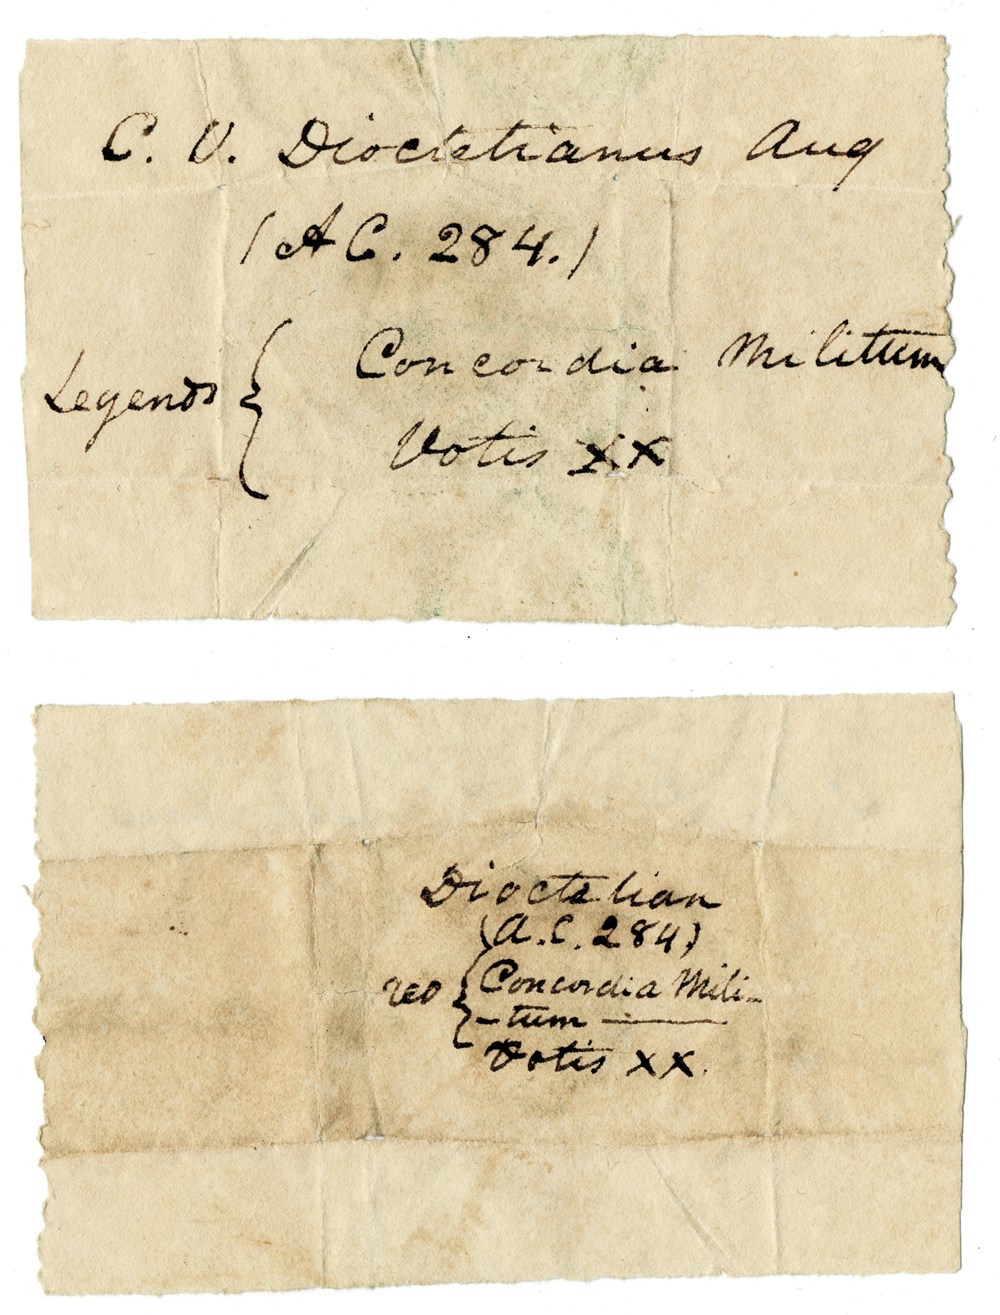 C. V. Diocletianus Aug
(A C. 284.)
Legends { Concordia Militum
Votis XX
Diocletian
(A. C. 284)
rev { Concordia Mili-
-tum
Votis XX.